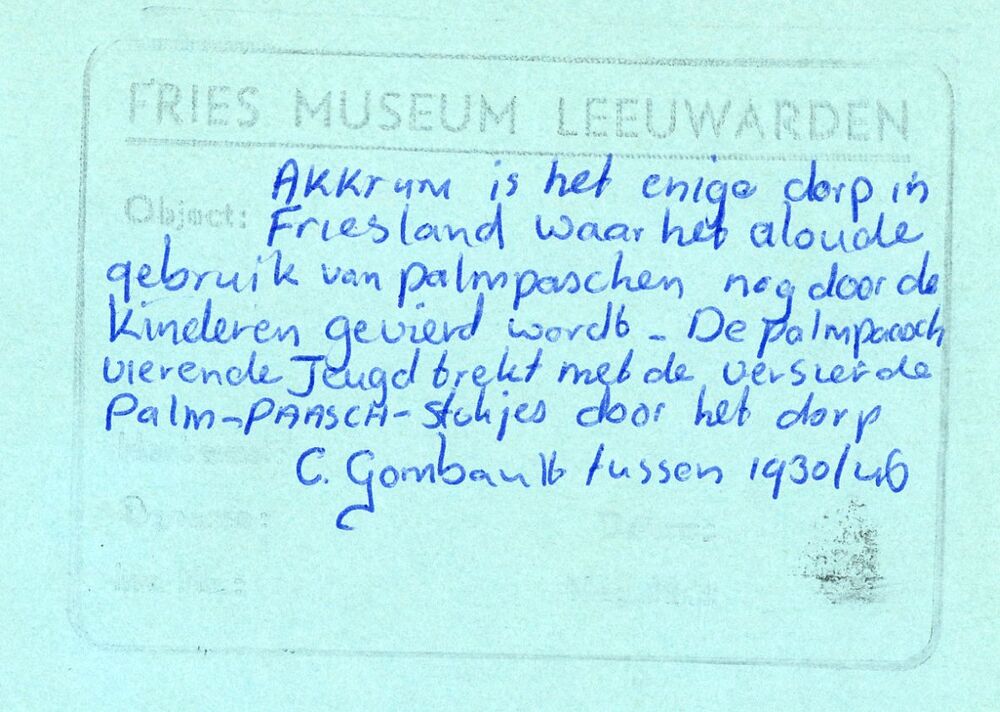 FRIES MUSEUM LEEUWARDEN
Object:
AKKrum is het enige dorp in
Friesland waar het aloude
gebruik van palmpaschen nog door de
Kinderen gevierd wordt - De palmpaasch
vierende Jeugd trekt met de versierde
Palm-PAASCH-stokjes door het dorp
C. Gombault tussen 1930/46